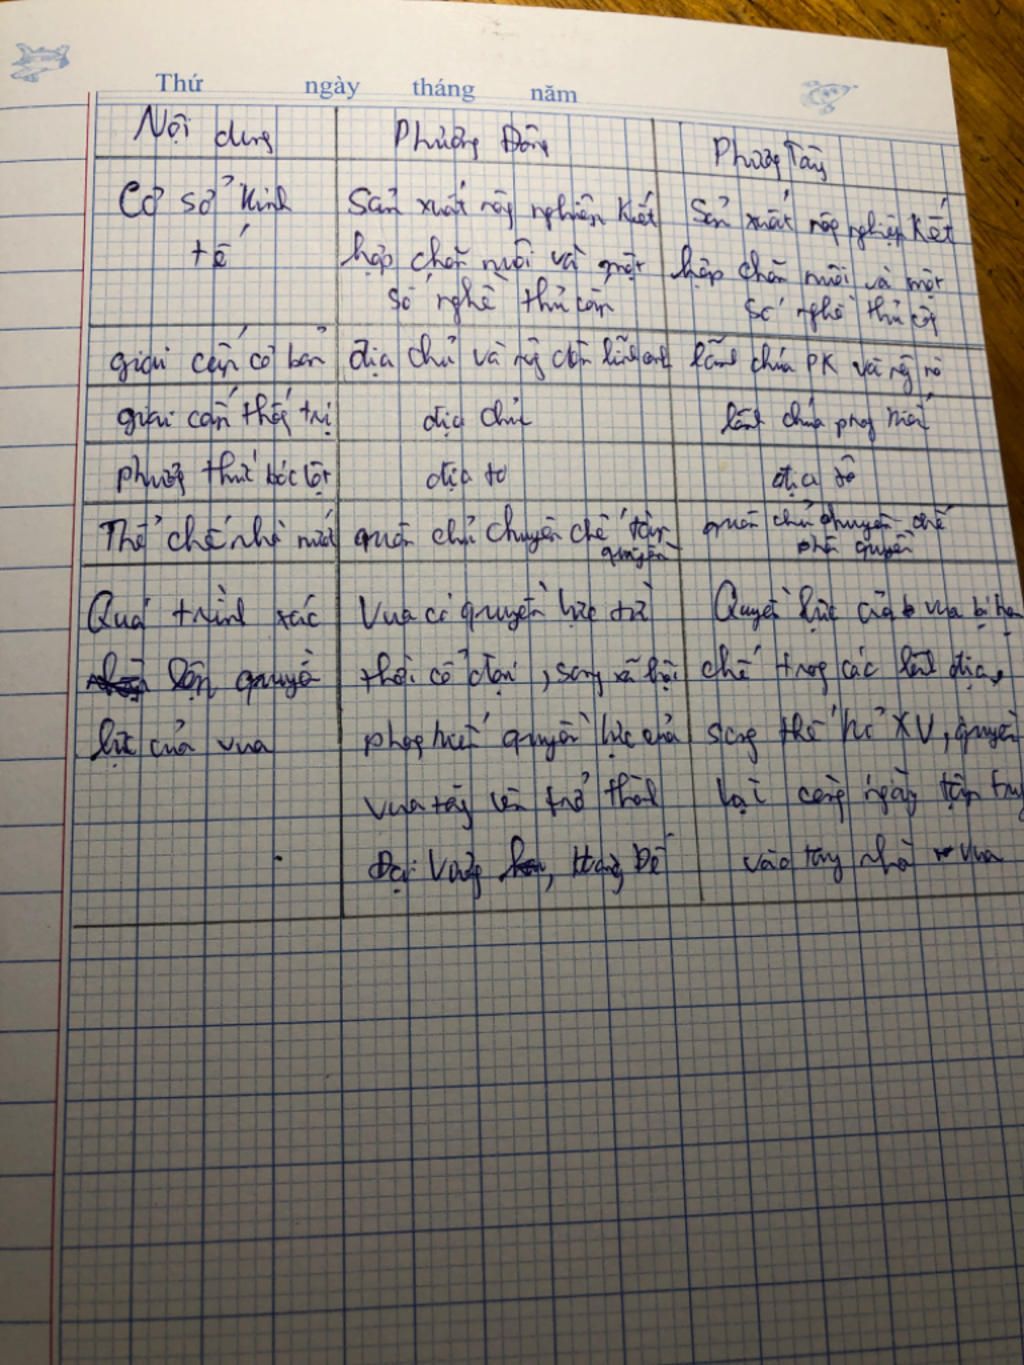 Thứ ngày tháng năm
Nội dung
Phương Đông
Phương Tây
Cơ sở Kinh
tế
Sản xuất nôg nghiệp Kết
hợp chăn nuôi và một
số nghề thủ côn
Sản xuất nôg nghiệp Kết
hợp chăn nuôi và một
số nghề thủ côg
giai cấp cơ bản
địa chủ và nôg dân lĩnh canh
lãnh chúa PK và nôg nô
giai cấp thốg trị
địa chủ
lãnh chúa phog Kiến
phương thức bóc lột
địa tô
địa tô
Thể chế nhà nước
quân chủ chuyên chế tập
quyền
quân chủ chuyên chế
phân quyền
Quá trình xác
lập quyền
lực của vua
Vua có quyền lực từ
thời cổ đại, sang xã hội
phog kiến quyền lực của
vua tăg lên trở thành
Đại Vươg, Hoàng Đế
Quyền lực của vua bị hạn
chế trog các lãnh địa,
sang thế kỉ XV, quyền
lại càng ngày tập trug
vào tay nhà vua